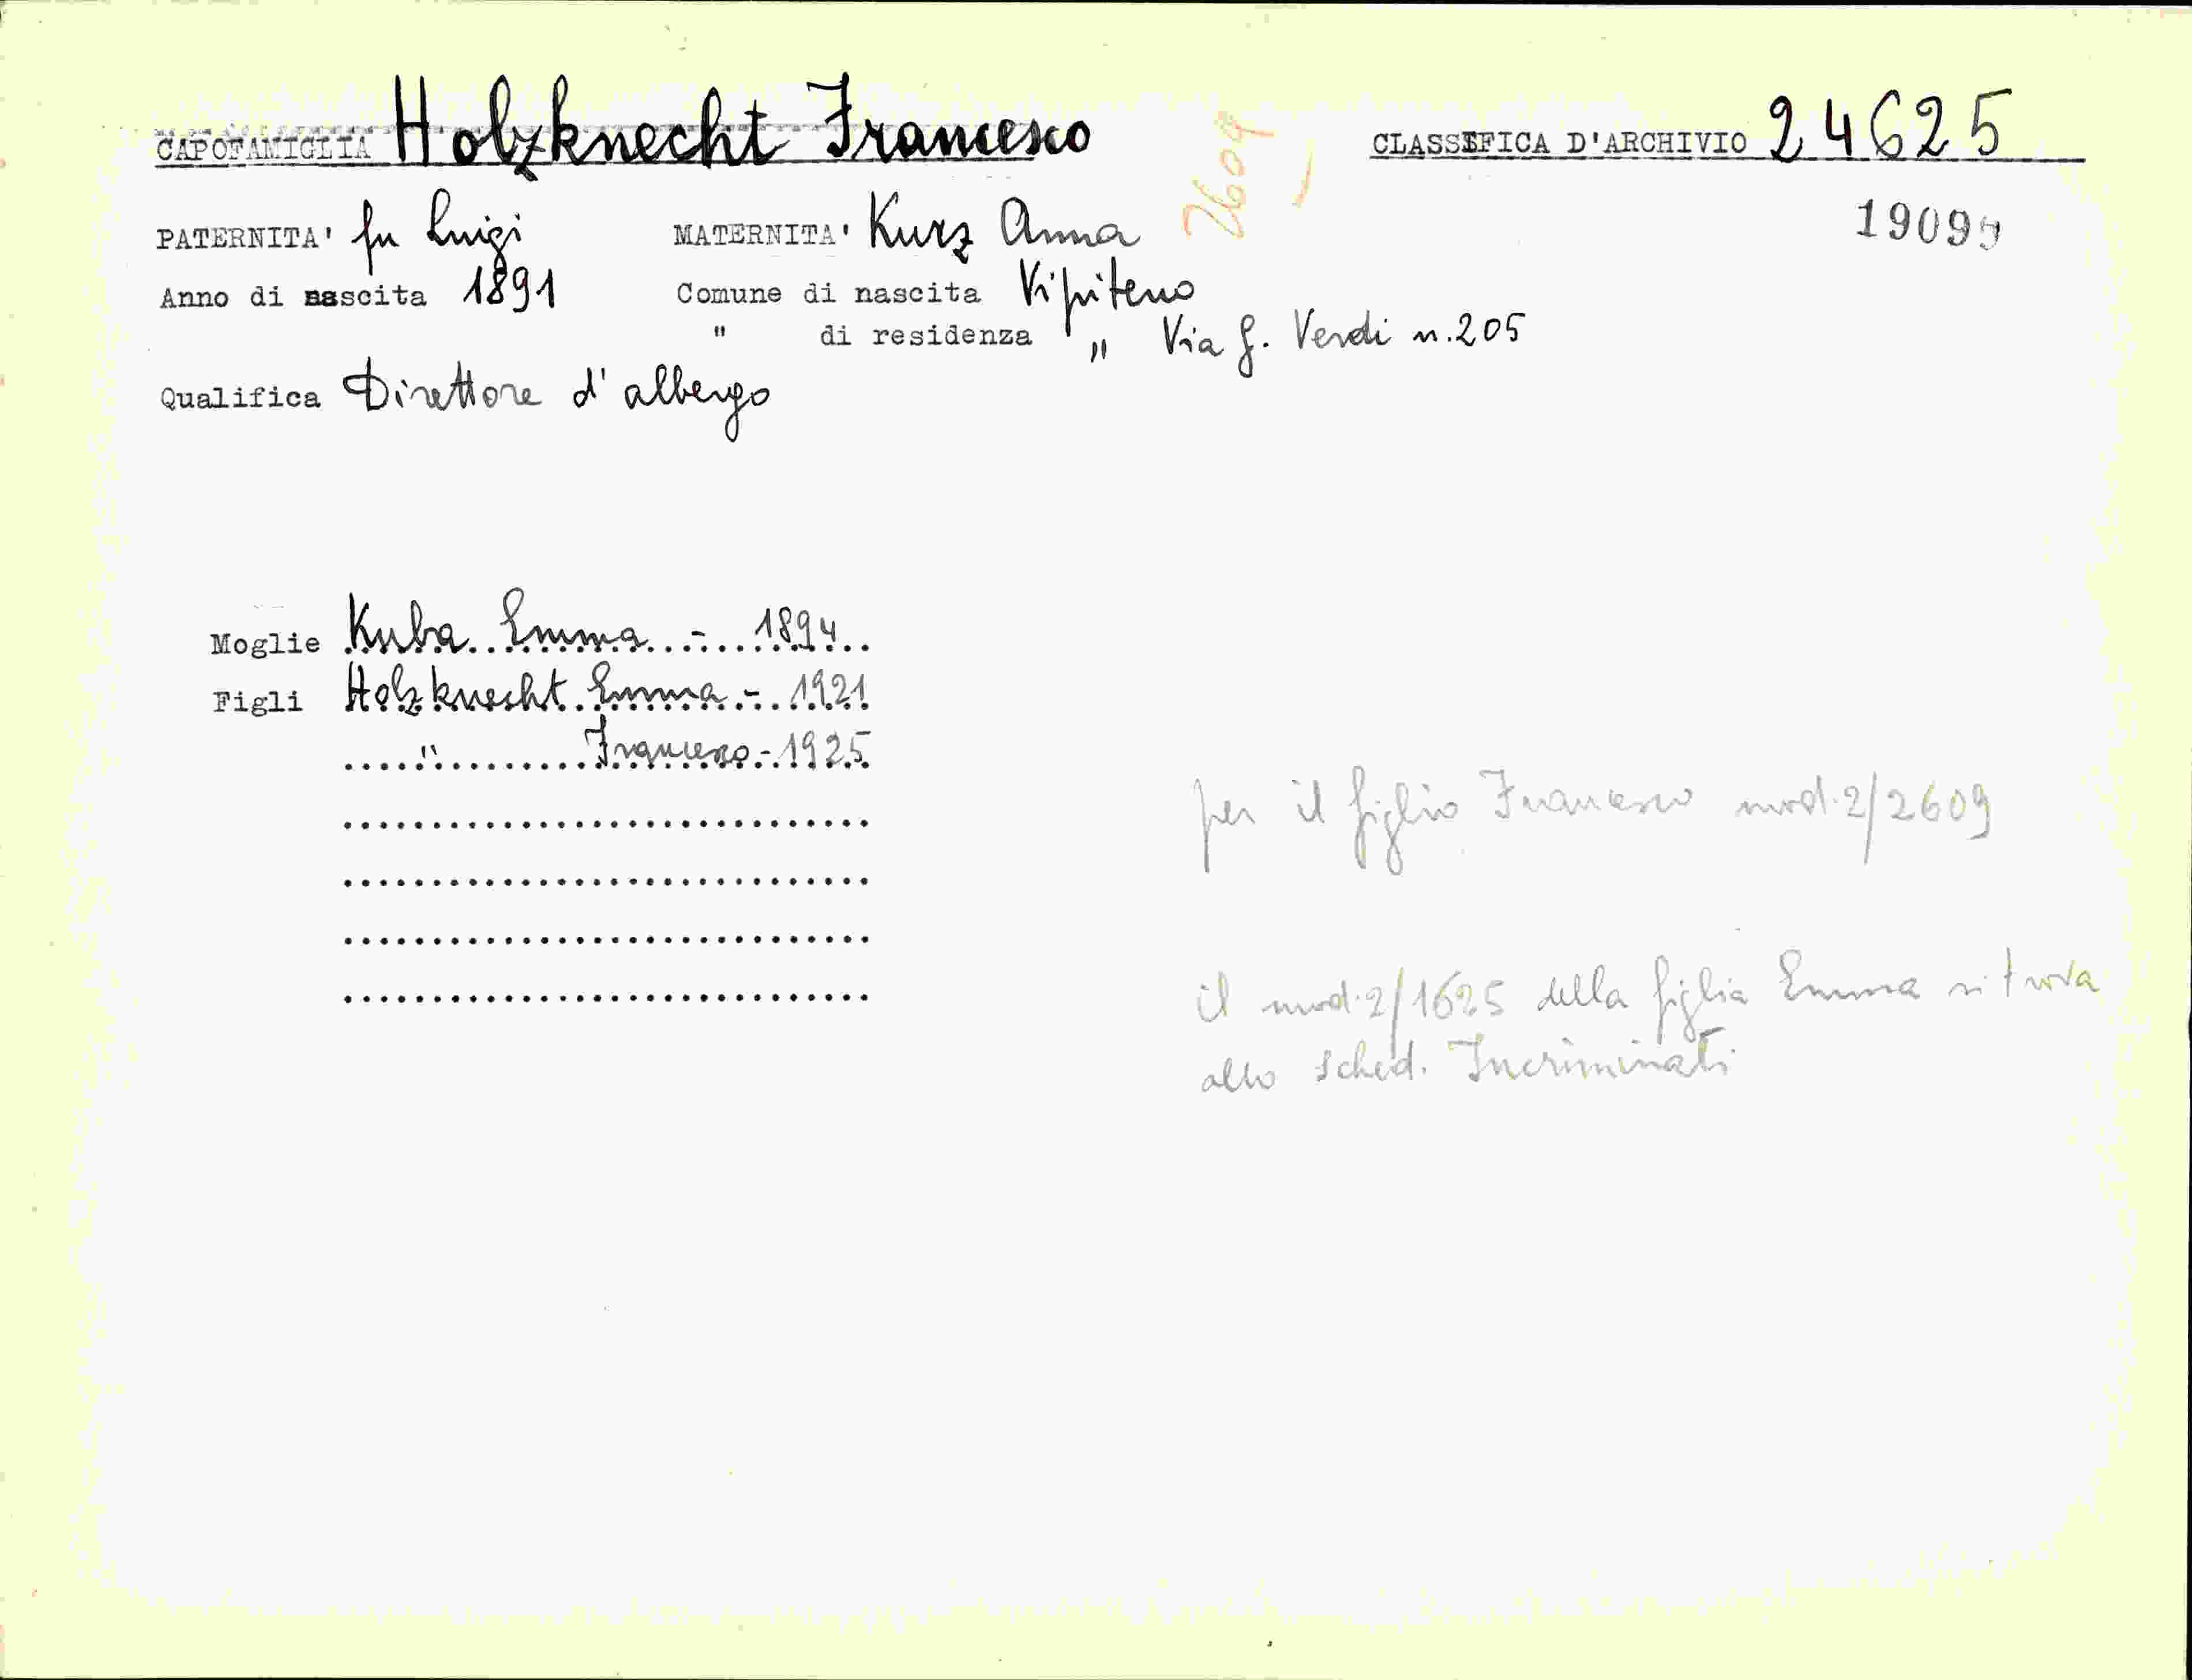 CAPOFAMIGLIA Holzknecht Francesco
CLASSIFICA D'ARCHIVIO 24625
2609
PATERNITA' fu Luigi MATERNITA' Kurz Anna
19099
Anno di nascita 1891 Comune di nascita Vipiteno
" di residenza " Via G. Verdi n.205
Qualifica Direttore d'albergo
Moglie Kuba Emma - 1894
Figli Holzknecht Emma - 1921
" Francesco - 1925
per il figlio Francesco mod.2/2609
il mod.2/1625 della figlia Emma si trova
allo sched. Incriminati